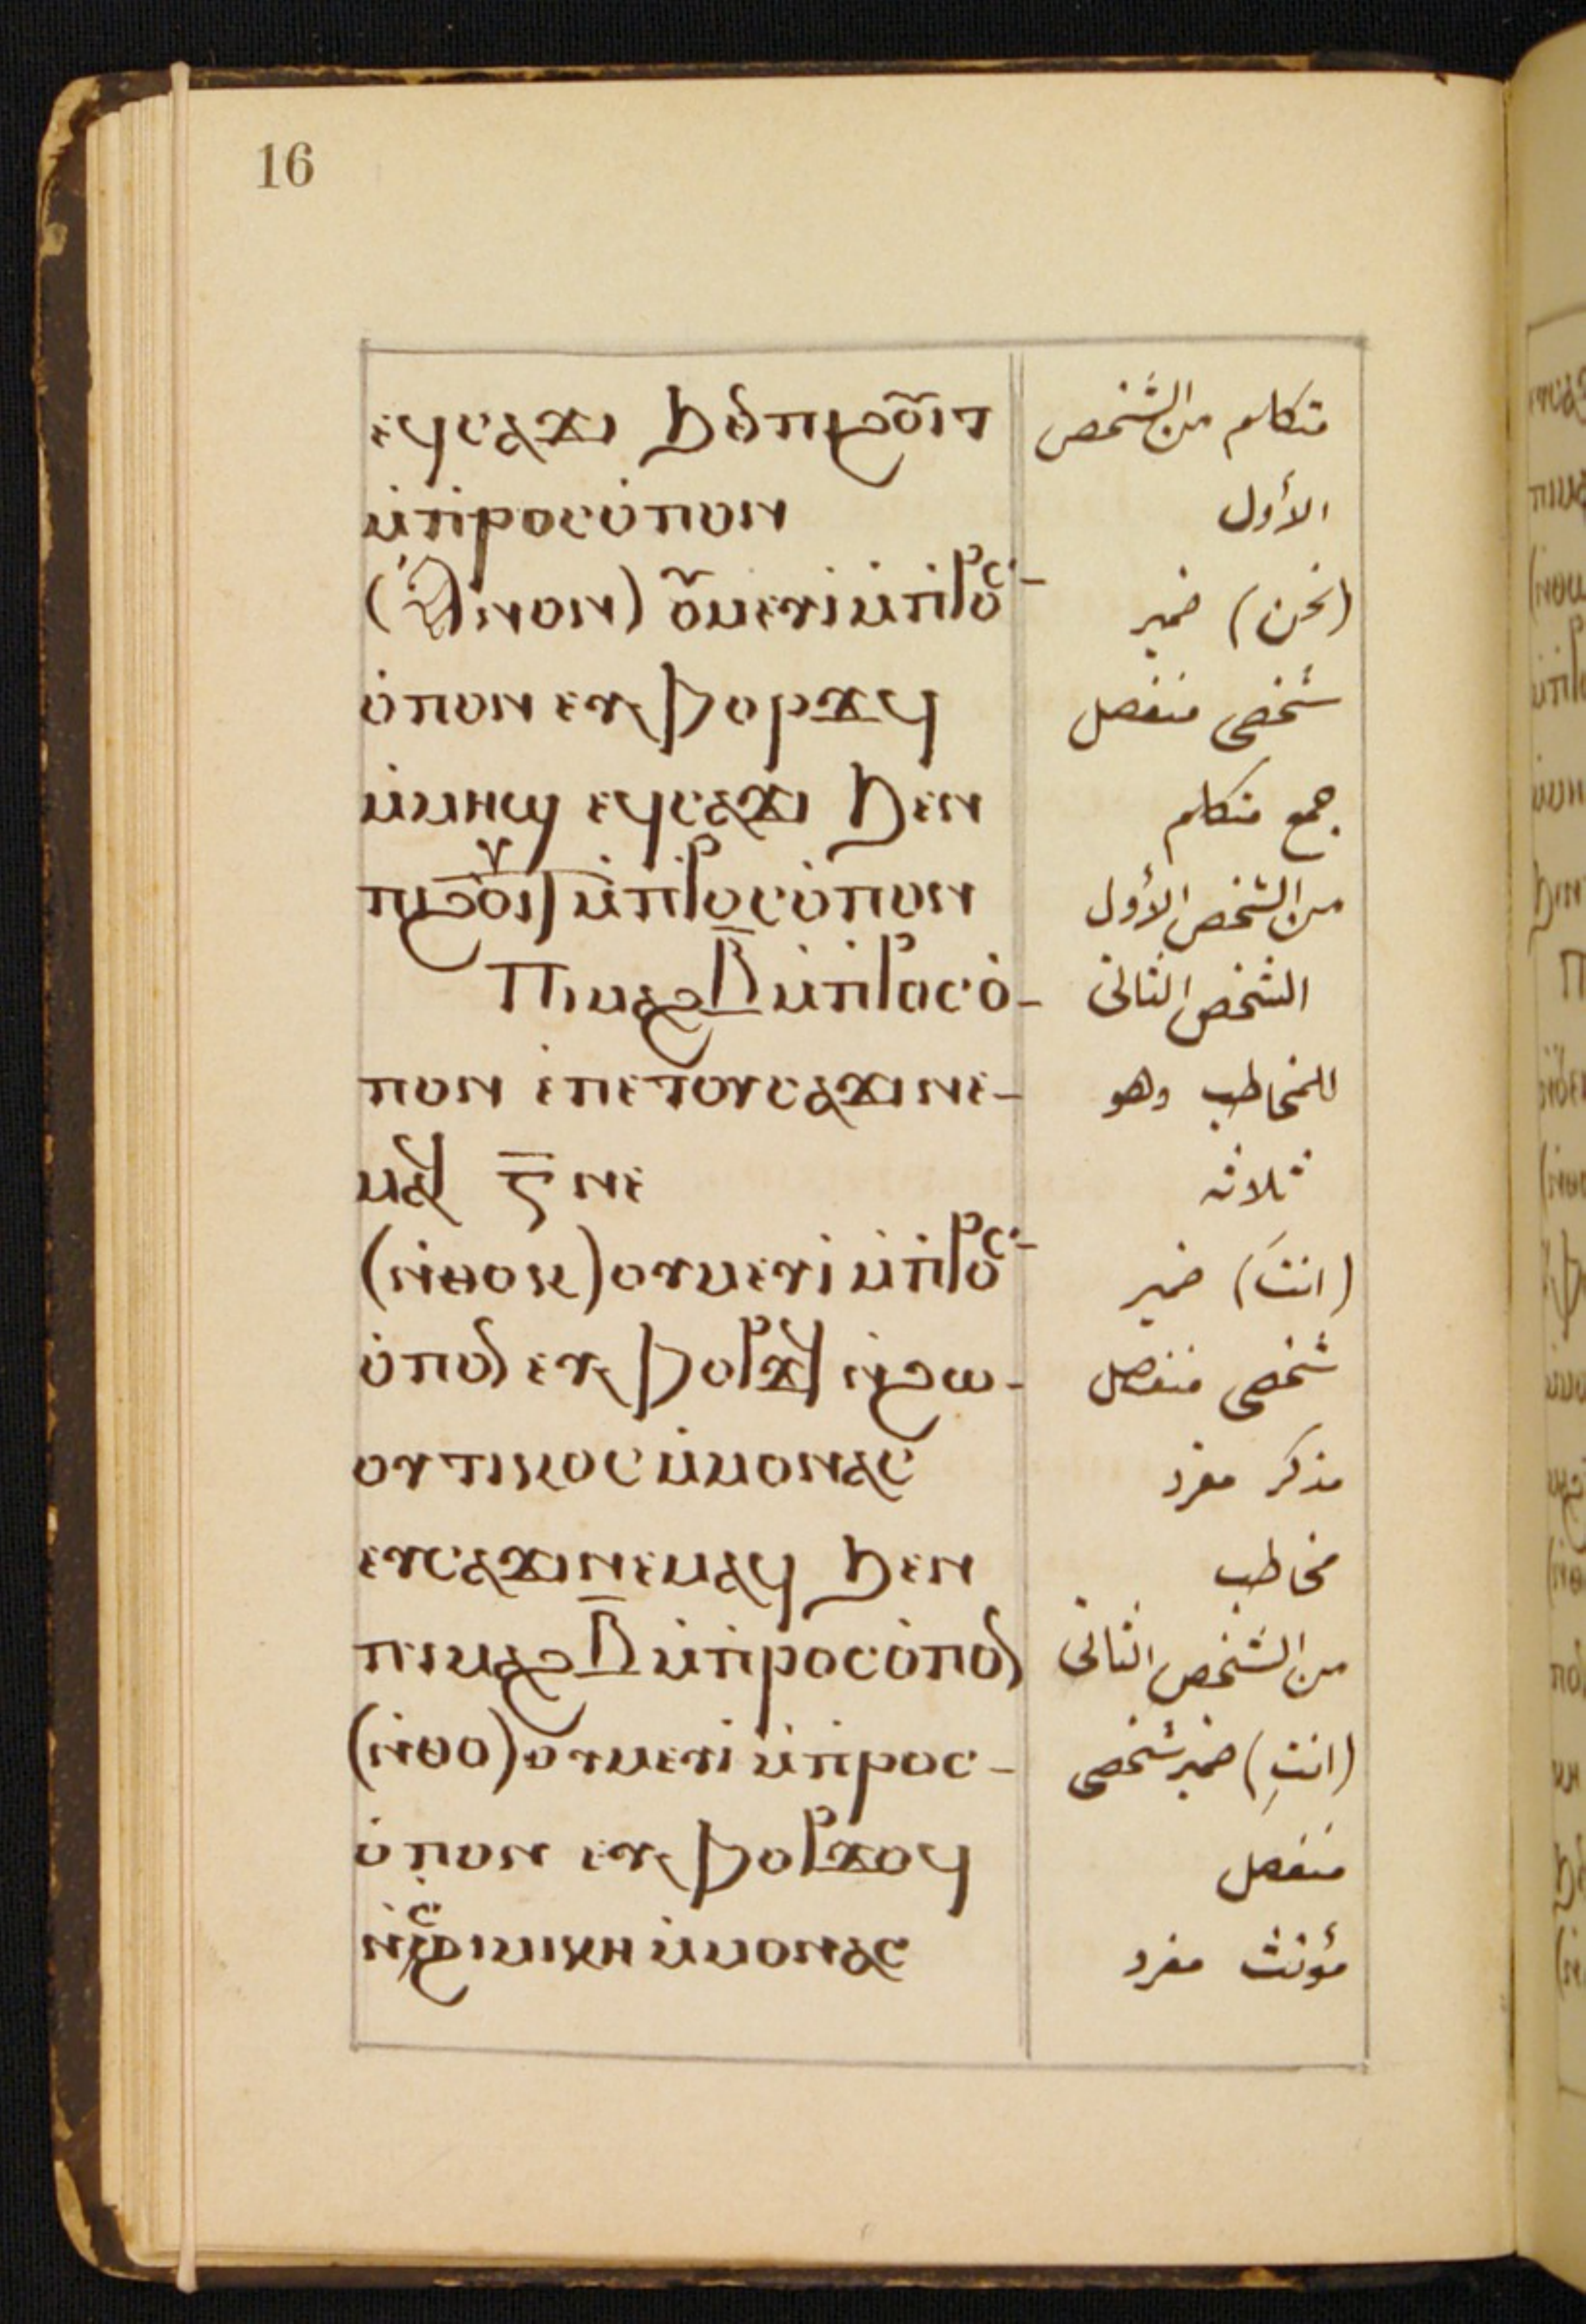 16
ⲉϥⲥⲁϫⲓ ϧⲉⲛ ⲡϩⲟⲩⲓⲧ متكلم من الشخص
ⲙ̇ⲡ̇ⲣⲟⲥⲟ̇ⲡⲟⲛ الأول
(ⲁⲛⲟⲛ) ⲟⲩⲙⲉⲩⲓ̇ ⲙ̇ⲡ̇ⲣⲟⲥ- (نحن) ضمير
ⲟ̇ⲡⲟⲛ ⲉⲩⲫⲟⲣϫϥ شخصى منفصل
ⲙ̇ⲙⲏϣ ⲉϥⲥⲁϫⲓ ϧⲉⲛ جمع متكلم
ⲡϩⲟⲩⲓⲧ ⲙ̇ⲡ̇ⲣⲟⲥⲟ̇ⲡⲟⲛ من الشخص الأول
Ⲡⲓⲙⲁϩⲃ̅ ⲙ̇ⲡ̇ⲣⲟⲥⲟ̇- الشخص الثانى
ⲡⲟⲛ ⲉ̇ⲡⲉⲧⲟⲩⲥⲁϫⲓⲛⲉ- للمخاطب وهو
ⲙⲁϥ ⲅ̅ ⲛⲉ ثلاثه
(ⲛ̇ⲑⲟⲕ) ⲟⲩⲙⲉⲩⲓ̇ ⲙ̇ⲡ̇ⲣⲟⲥ- (انتَ) ضمير
ⲟ̇ⲡⲟⲛ ⲉⲩⲫⲟⲣϫϥ ⲛ̇ϩⲱ- شخصى منفصل
ⲟⲩⲧⲓⲕⲟⲥ ⲙ̇ⲙⲟⲛⲁⲥ مذكر مفرد
ⲉⲩⲥⲁϫⲓⲛⲉⲙⲁϥ ϧⲉⲛ مخاطب
ⲡⲓⲙⲁϩⲃ̅ ⲙ̇ⲡ̇ⲣⲟⲥⲟ̇ⲡⲟⲛ من الشخص الثانى
(ⲛ̇ⲑⲟ) ⲟⲩⲙⲉⲩⲓ̇ ⲙ̇ⲡ̇ⲣⲟⲥ- (انتِ) ضمير شخصى
ⲟ̇ⲡⲟⲛ ⲉⲩⲫⲟⲣϫⲟϥ منفصل
ⲛ̇ⲥϩⲓⲙⲓⲕⲏ ⲙ̇ⲙⲟⲛⲁⲥ مؤنث مفرد